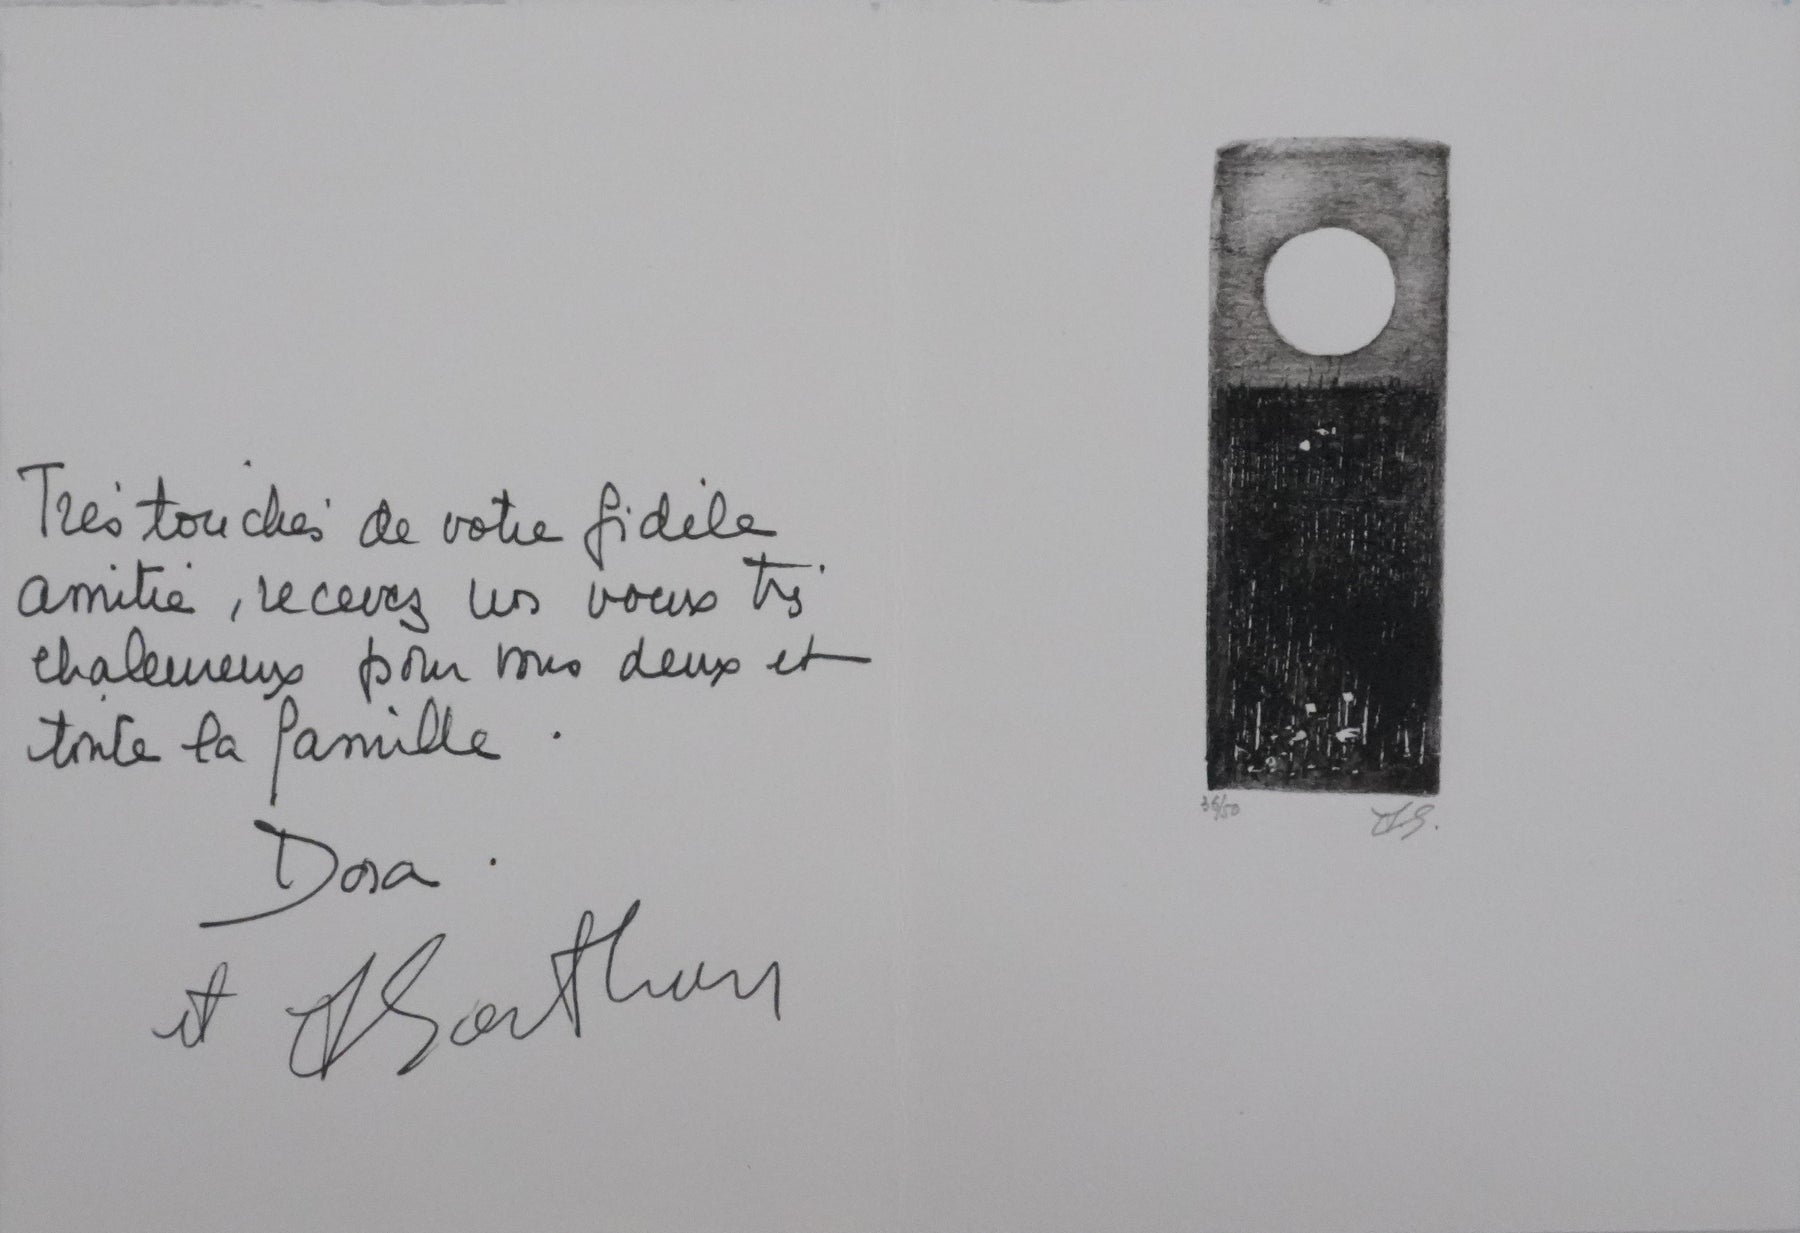 Très touchés de votre fidèle
amitié, recevez nos voeux très
chaleureux pour vous deux et
toute la famille.
Dora.
et
35/50